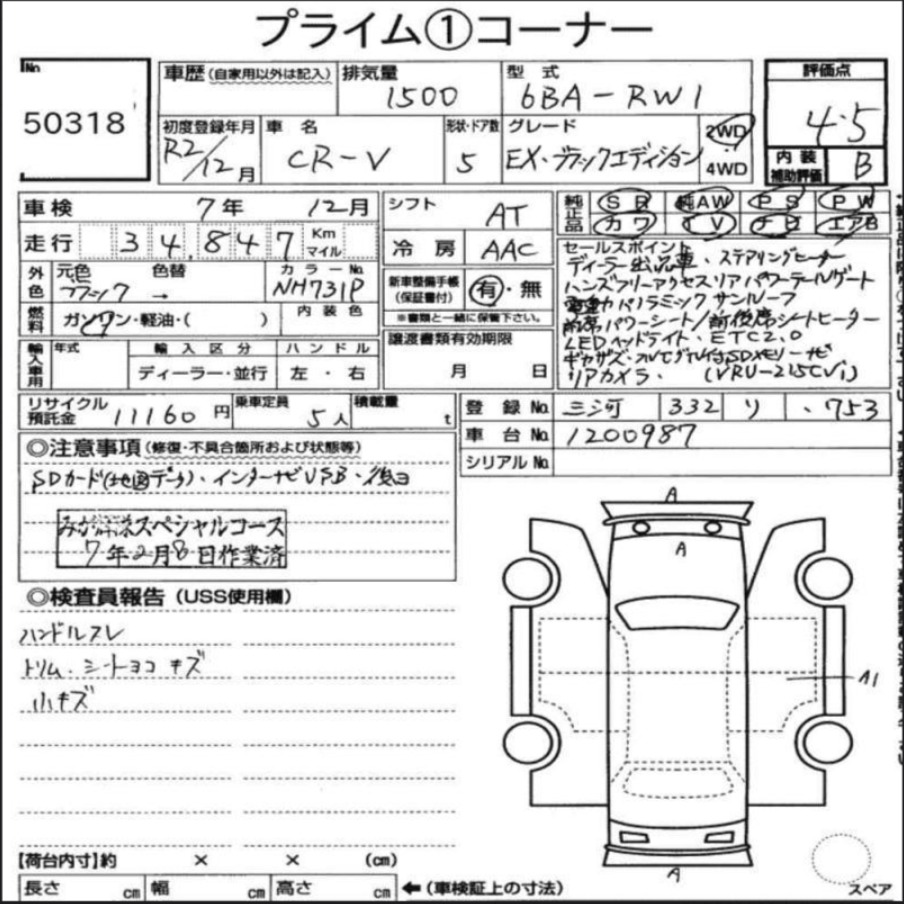 プライム①コーナー
No.
50318
車歴(自家用以外は記入)
排気量
1500
型式
6BA-RW1
評価点
4.5
初度登録年月
R2/12月
車名
CR-V
形状・ドア数
5
グレード
EX・ブラックエディション
2WD
4WD
内装補助評価
B
車検 7年 12月
走行 34,847 Km マイル
シフト
AT
冷房
AAC
純正品
SR 純AW PS PW
カワ TV ナビ エアB
外色
元色 色替 カラーNo.
ブラック → NH731P
燃料
ガソリン・軽油・( )
内装色
新車整備手帳(保証書付)
有・無
※書類と一緒に保管下さい。
譲渡書類有効期限
月 日
セールスポイント
ディーラー出品車・ステアリングヒーター
ハンズフリーアクセスリアパワーテールゲート
電動パノラミックサンルーフ
前席パワーシート/前後席シートヒーター
LEDヘッドライト・ETC2.0
ギャザズ・フルセグTV付SDメモリーナビ
リアカメラ・(VRU-215CVi)
輸入車用
年式
輸入区分
ディーラー・並行
ハンドル
左・右
リサイクル預託金 11160円
乗車定員
5人
積載量
t
登録No. 三河 332 リ ・753
車台No. 1200987
シリアルNo.
◎注意事項(修復・不具合箇所および状態等)
SDカード(地図データ)・インターナビUSB・後日
スペシャルコース
7年2月8日作業済
◎検査員報告(USS使用欄)
ハンドルスレ
トリム・シートヨコキズ
小キズ
A
A
A1
A
スペア
【荷台内寸】約 × × (cm)
長さ cm 幅 cm 高さ cm ←(車検証上の寸法)